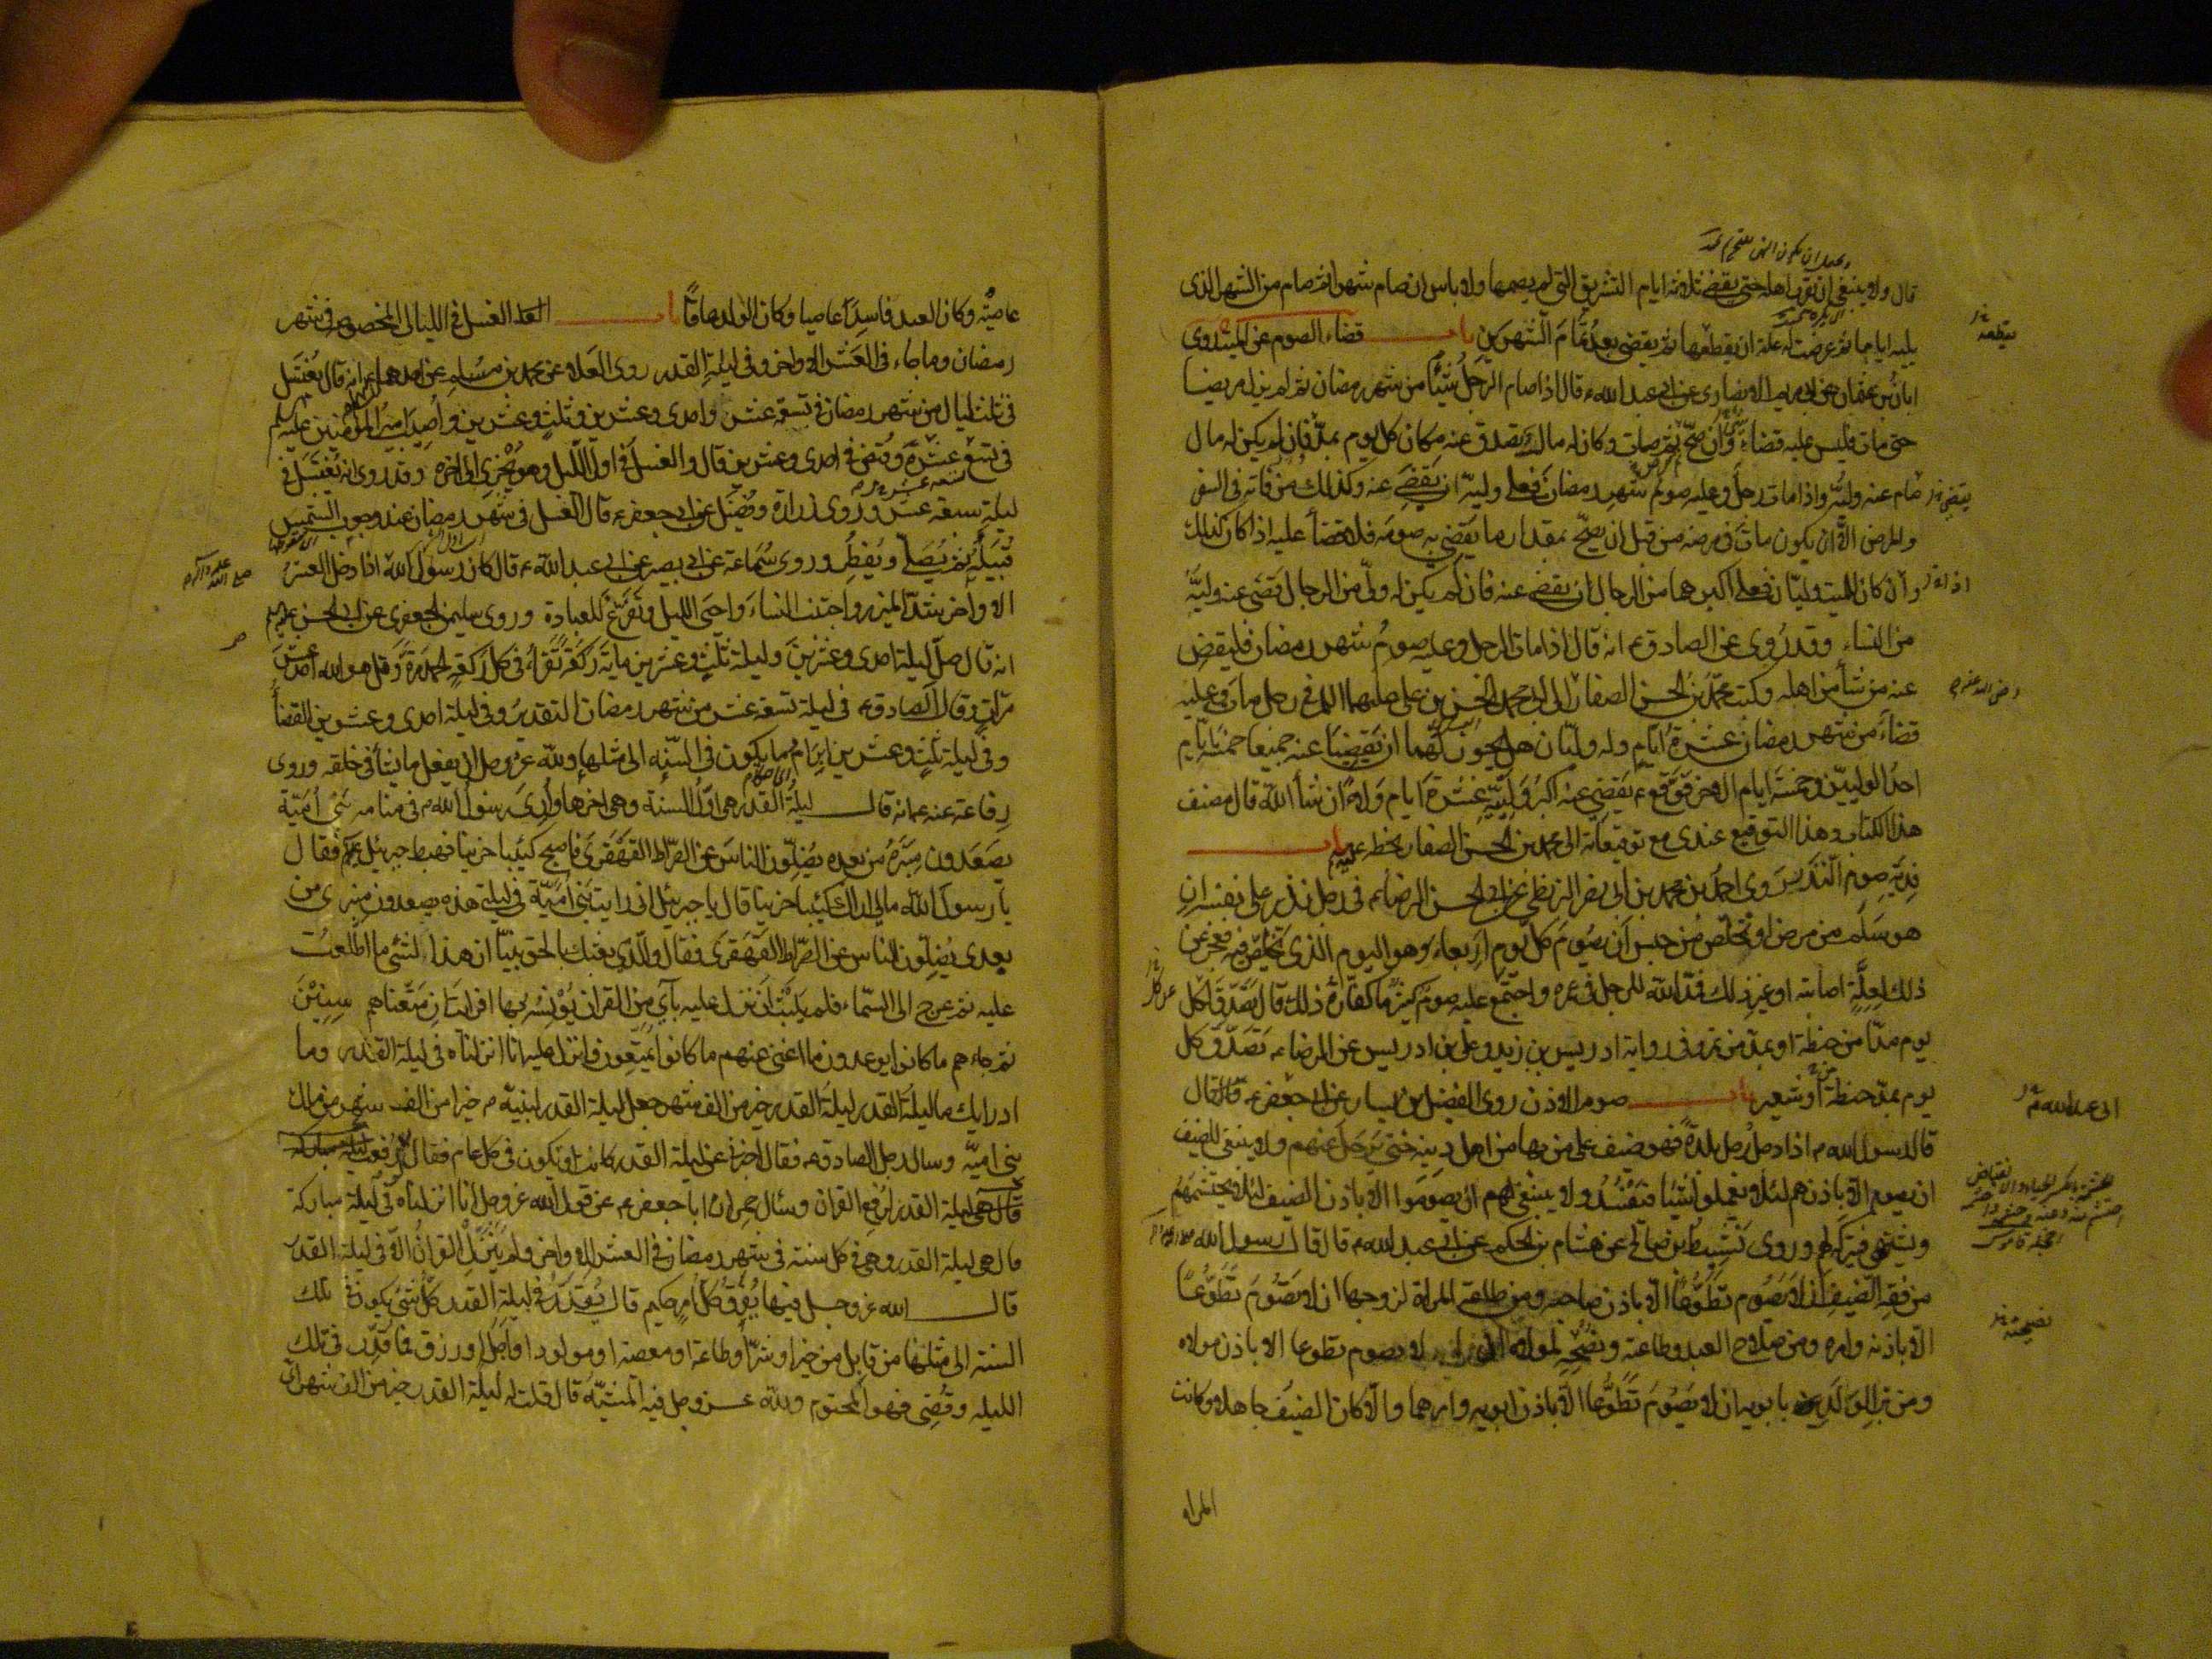 قال ولا ينبغى ان يقرب اهله حتى يقضى ثلاثة ايام التشريق التى لم يصمها ولا باس ان صام شهرا ثم صام من الشهر الذى
يليه اياما ثم عرضت له علة ان يقطعها ثم يقضى بعد تمام الشهرين باب قضاء الصوم عن الميت روى
ابان بن عثمان عن ابى مريم الانصارى عن ابى عبد الله ع قال اذا صام الرجل شيئا من شهر رمضان ثم لم يزل مريضا
حتى مات فليس عليه قضاء وان صح ثم مات وكان له مال تصدق عنه مكان كل يوم بمد فان لم يكن له مال
صام عنه وليه واذا مات رجل وعليه صوم شهر رمضان فعلى وليه ان يقضى عنه وكذلك من فاته فى السفر
والمرض الا ان يكون مات فى مرضه من قبل ان يصح بمقدار ما يقضى به صومه فلا قضاء عليه اذا كان كذلك
وان كان للميت وليان فعلى اكبرهما من الرجال ان يقضى عنه فان لم يكن له ولى من الرجال قضى عنه وليه
من النساء وقد روى عن الصادق ع انه قال اذا مات الرجل وعليه صوم شهر رمضان فليقض
عنه من شاء من اهله وكتب محمد بن الحسن الصفار الى ابى محمد الحسن بن على عليهما السلم فى رجل مات وعليه
قضاء من شهر رمضان عشرة ايام وله وليان هل يجوز لهما ان يقضيا عنه جميعا خمسة ايام
احد الوليين وخمسة ايام الاخر فوقع ع يقضى عنه اكبر ولييه عشرة ايام ولاء ان شاء الله قال مصنف
هذا الكتاب وهذا التوقيع عندى مع توقيعاته الى محمد بن الحسن الصفار بخطه عليه باب
فدية صوم النذر روى احمد بن محمد بن ابى نصر البزنطى عن ابى الحسن الرضا ع فى رجل نذر على نفسه ان
هو سلم من مرض او تخلص من حبس ان يصوم كل يوم اربعاء وهو اليوم الذى تخلص فيه فعجز عن
ذلك لعلة اصابته او غير ذلك فمد الله للرجل فى عمره واجتمع عليه صوم كثير ما كفارة ذلك قال تصدق لكل
يوم مدا من حنطة او بمد من تمر وفى رواية ادريس بن زيد وعلى بن ادريس عن الرضا ع تصدق كل
يوم بمد حنطة او شعير باب صوم الاذن روى الفضيل بن يسار عن ابى جعفر ع قال قال
قال رسول الله ص اذا دخل رجل بلدة فهو ضيف على من بها من اهل دينه حتى يرحل عنهم ولا ينبغى للضيف
ان يصوم الا باذنهم لئلا يعملوا شيئا فيفسد ولا ينبغى لهم ان يصوموا الا باذن الضيف لئلا يحتشمهم
ويشتهى فيتركه لهم وروى نشيط بن صالح عن هشام بن الحكم عن ابى عبد الله ع قال قال رسول الله
من فقه الضيف ان لا يصوم تطوعا الا باذن صاحبه ومن طاعة المراة لزوجها ان لا تصوم تطوعا
الا باذنه وامره ومن صلاح العبد وطاعته ونصحه لمولاه ان لا يصوم تطوعا الا باذن مولاه
ومن بر الولد بابويه ان لا يصوم تطوعا الا باذن ابويه وامرهما والا كان الضيف جاهلا وكانت
المراه
عاصية وكان العبد فاسدا عاصيا وكان الولد عاقا باب الغسل فى الليالى المخصوصة فى شهر
رمضان وما جاء فى العشر الاواخر وفى ليلة القدر روى العلاء عن محمد بن مسلم عن احدهما ع انه قال يغتسل
فى ثلث ليال من شهر رمضان فى تسع عشرة واحدى وعشرين وثلث وعشرين واصيب امير المؤمنين عليه السلم
فى تسع عشرة وقبض فى احدى وعشرين قال والغسل فى اول الليل وهو يجزى الى اخره وقد روى انه يغتسل فى
ليلة سبعة عشر وروى زرارة وفضيل عن ابى جعفر ع قال الغسل فى شهر رمضان عند وجوب الشمس
قبيله ثم يصلى ويفطر وروى سماعة عن ابى بصير عن ابى عبد الله ع قال كان رسول الله اذا دخل العشر
الاواخر شد الميزر واجتنب النساء واحيى الليل وتفرغ للعبادة وروى سليمن الجعفرى عن ابى الحسن عليه السلم
انه قال صل ليلة احدى وعشرين وليلة ثلث وعشرين ماية ركعة تقرا فى كل ركعة الحمد مرة وقل هو الله احد عشر
مرات وقال الصادق ع فى ليلة تسعة عشر من شهر رمضان التقدير وفى ليلة احدى وعشرين القضاء
وفى ليلة ثلث وعشرين ابرام ما يكون فى السنة الى مثلها ولله عز وجل ان يفعل ما يشاء فى خلقه وروى
رفاعة عنه ع انه قال ليلة القدر هى اول السنة وهى اخرها وارى رسول الله ص فى منامه بنى امية
يصعدون منبره من بعده يضلون الناس عن الصراط القهقرى فاصبح كئيبا حزينا فهبط جبرئيل ع فقال
يا رسول الله ما لى اراك كئيبا حزينا قال يا جبرئيل انى رايت بنى امية فى ليلتى هذه يصعدون منبرى من
بعدى يضلون الناس عن الصراط القهقرى فقال والذى بعثك بالحق نبيا ان هذا لشئ ما اطلعت
عليه ثم عرج الى السماء فلم يلبث ان نزل عليه بآى من القران يؤنسه بها افرايت ان متعناهم سنين
ثم جاءهم ما كانوا يوعدون ما اغنى عنهم ما كانوا يمتعون وانزل عليه انا انزلناه فى ليلة القدر وما
ادرايك ما ليلة القدر ليلة القدر خير من الف شهر جعل ليلة القدر لنبيه ص خيرا من الف شهر من ملك
بنى امية وسال رجل الصادق ع فقال اخبرنى عن ليلة القدر كانت او تكون فى كل عام فقال لو رفعت
ليلة القدر لرفع القران وسئال حمران ابا جعفر ع عن قول الله عز وجل انا انزلناه فى ليلة مباركة
قال هى ليلة القدر وهى فى كل سنة فى شهر رمضان فى العشر الاواخر ولم ينزل القران الا فى ليلة القدر
قال الله عز وجل فيها يفرق كل امر حكيم قال يقدر فى ليلة القدر كل شئ يكون فى تلك
السنة الى مثلها من قابل من خير او شر او طاعة او معصية او مولود او اجل او رزق فما قدر فى تلك
الليله وقضى فهو المحتوم ولله عز وجل فيه المشية قال قلت له ليلة القدر خير من الف شهر اى